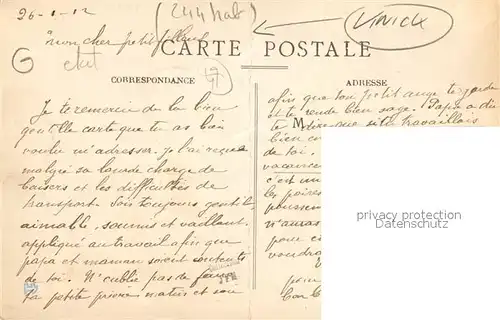 26-1-12
(244 hab)
UNICK
mon cher petit filleul
CARTE POSTALE
G
CORRESPONDANCE
ADRESSE
Je te remercie de la bien
gentille carte que tu as bien
voulu m'adresser. je l'ai reçue
malgré sa lourde charge de
baisers et les difficultés de
transport. Sois toujours gentil
aimable, soumis et vaillant
appliqué au travail afin que
papa et maman soient contents
de toi. N'oublie pas de faire
ta petite prière matin et soir
afin que ton petit ange te garde
et te rende bien sage. Papa a dû
te dire que si tu travaillais
M
bien
de toi.
vacances
c'est un
les poires
n'auras
pour
voudra
pour
privacy protection
watermark